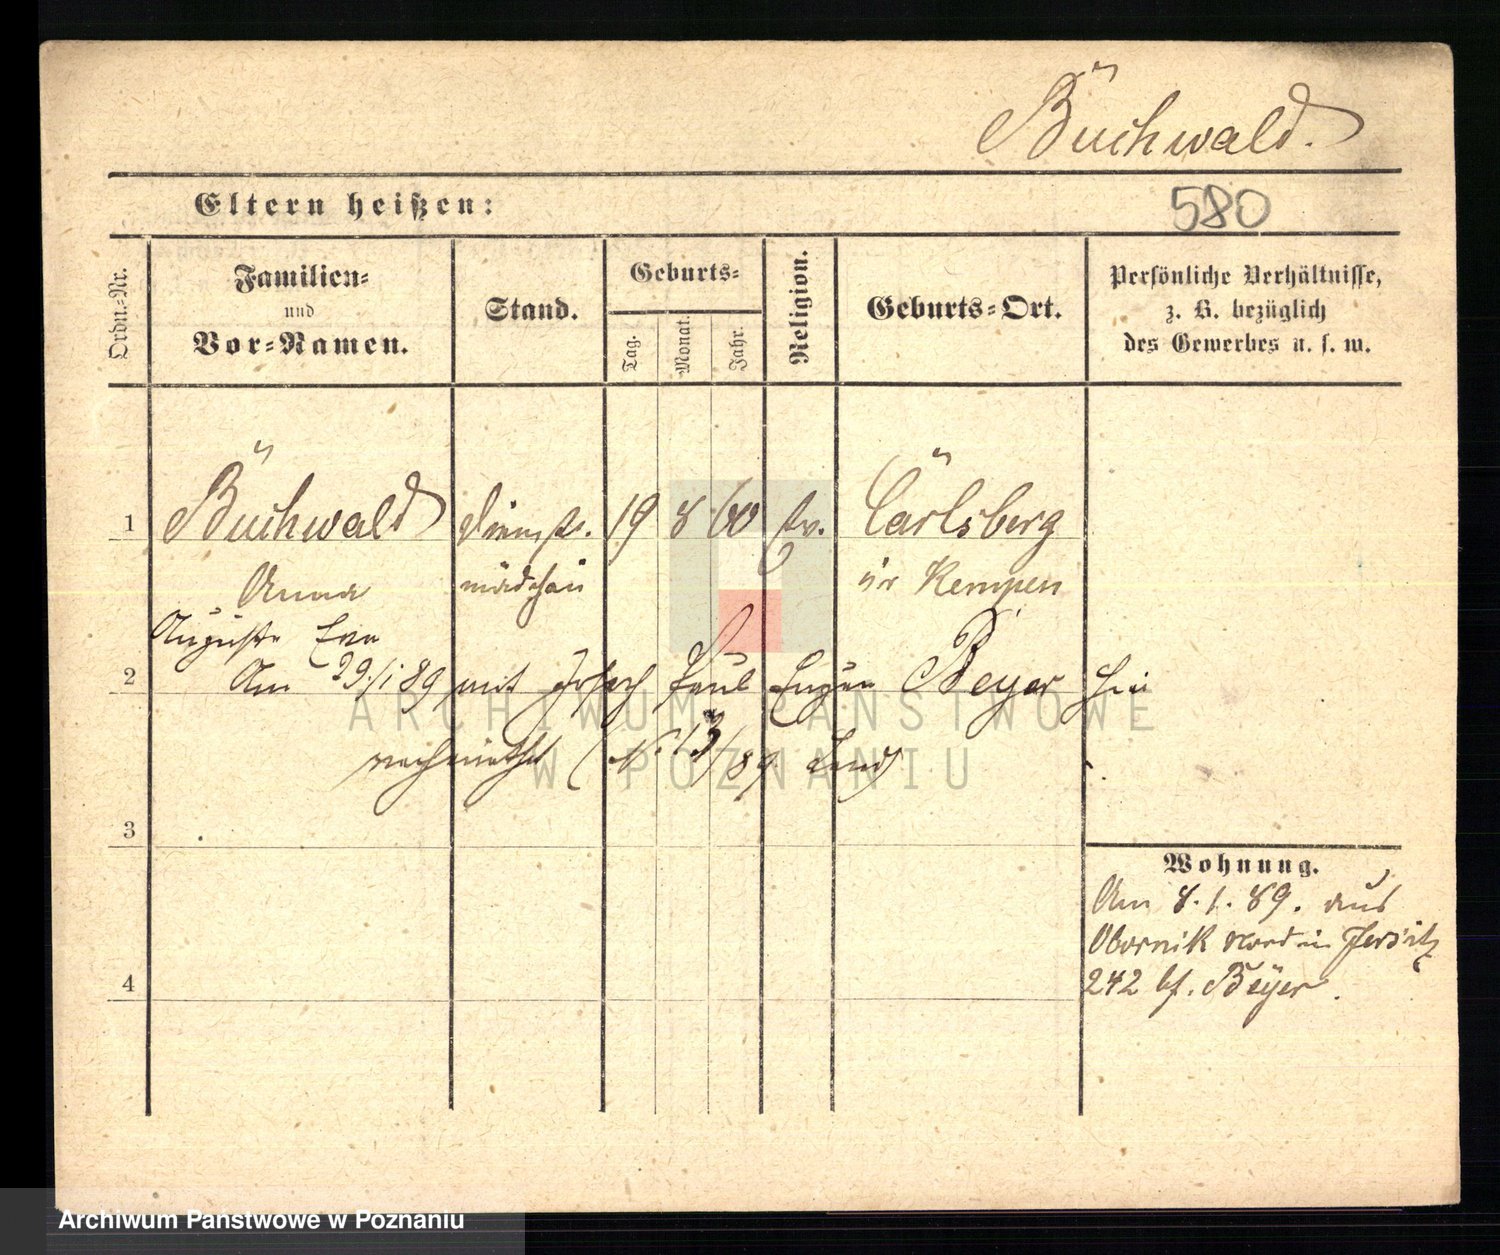 Büchwald.
Eltern heißen:
580
Ordn.-Nr.
Familien-
und
Vor-Namen.
Stand.
Geburts-
Tag.
Monat.
Jahr.
Religion.
Geburts-Ort.
Persönliche Verhältnisse,
z. B. bezüglich
des Gewerbes u. s. w.
1
Büchwald
Dienst-
19
8
60
Ev.
Carlsberg
Anna
mädchen
Kempen
Auguste
2
Am 29/1 89 mit Joseph Paul Eugen Beyer hier
(N. 13/89
3
Wohnung.
Am 8.1.89. aus
Obornik nach Jersitz
242 bei Beyer.
4
ARCHIWUM PAŃSTWOWE
W POZNANIU
Archiwum Państwowe w Poznaniu